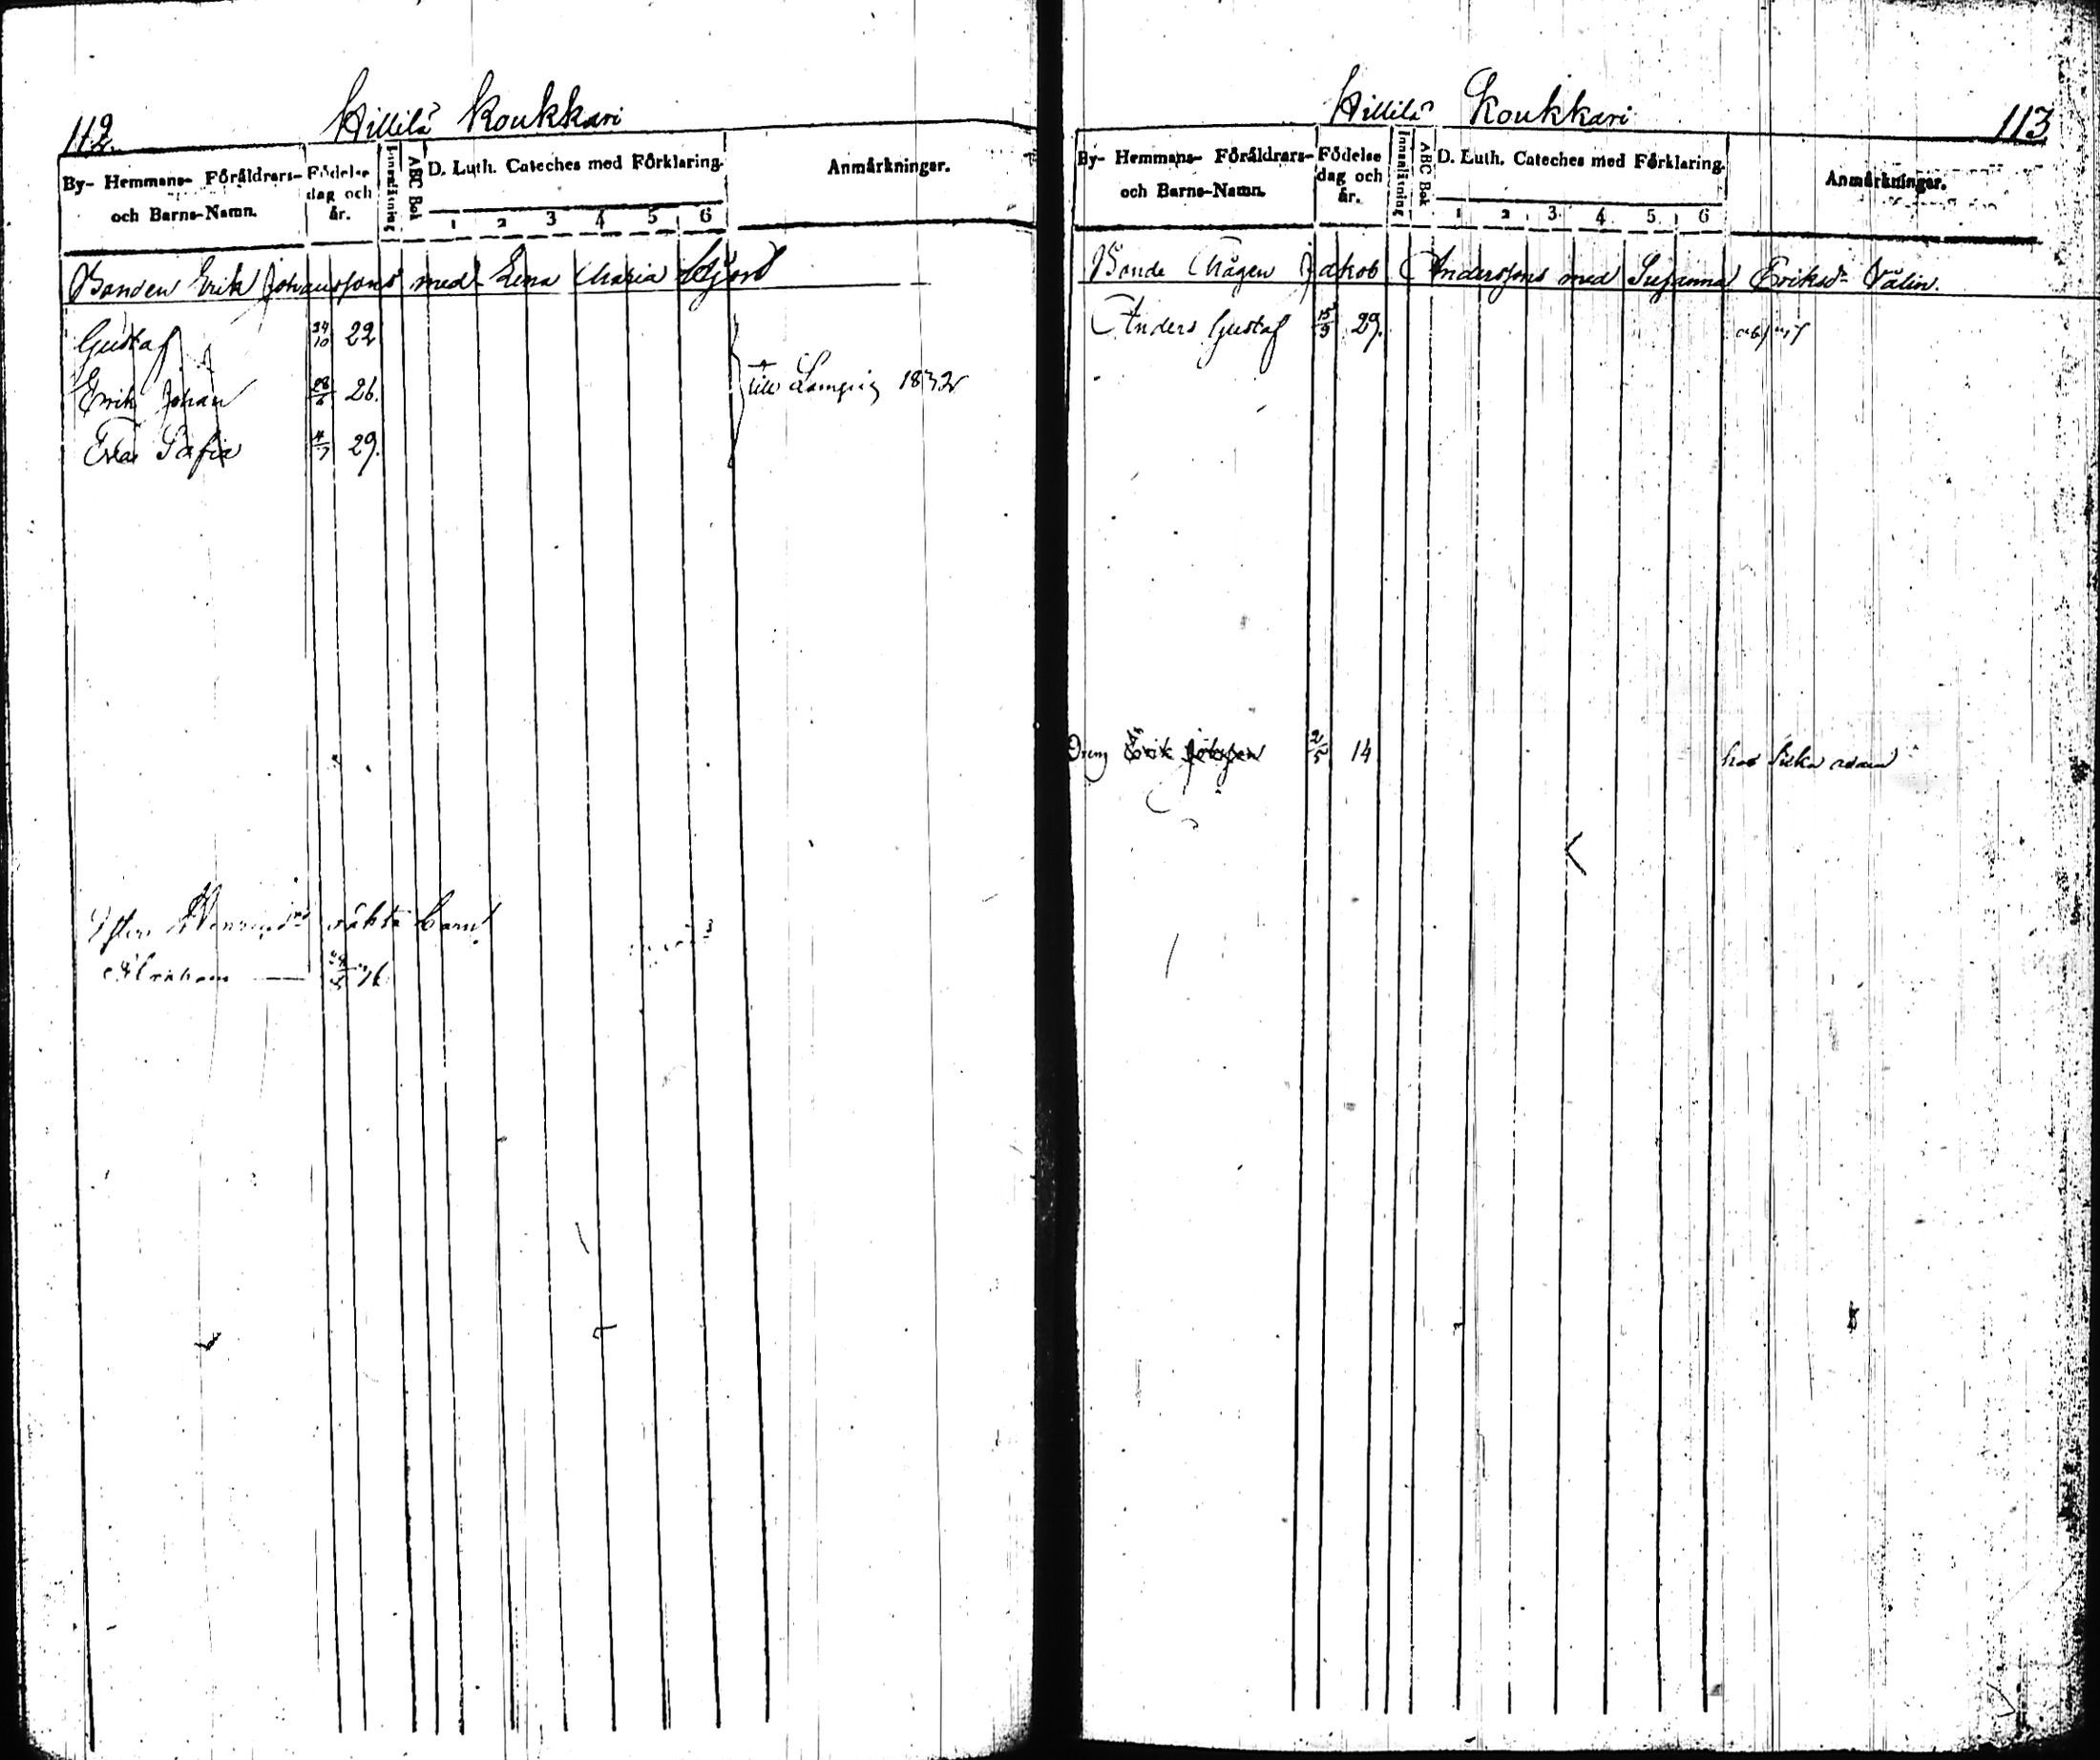 112.
Hillilä Koukkari
By- Hemmans- Föräldrars- och Barns-Namn.
Födelse dag och år.
Innanläsning
ABC Bok
D. Luth. Cateches med Förklaring.
1 2 3 4 5 6
Anmärkningar.
Bonden Erik Johanssons med Lena Maria
Gustaf 24/10 22
Erik Johan 26.
Eva Safia 4/7 29.
till 1832
barn
Abraham
Hillilä Koukkari
113
By- Hemmans- Föräldrars- och Barns-Namn.
Födelse dag och år.
Innanläsning
ABC Bok
D. Luth. Cateches med Förklaring.
1 2 3 4 5 6
Anmärkningar.
Bonde Mågen Jakob Anderssons med Susanna Eriksdr Välin.
Anders Gustaf 15/9 29.
Dreng Erik 2/5 14
hos